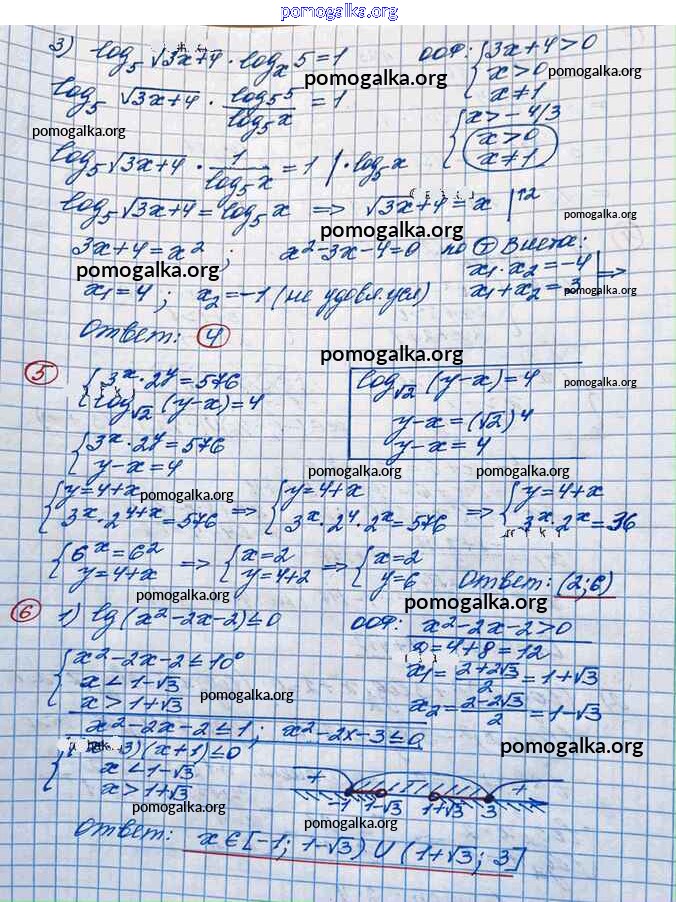 pomogalka.org
3) log₅√3x+4 · logₓ5=1
ООФ: {3x+4>0
x>0
x≠1
log₅ √3x+4 · log₅5/log₅x = 1
pomogalka.org
pomogalka.org
pomogalka.org
{x>-4/3
x>0
x≠1
log₅√3x+4 · 1/log₅x = 1 | · log₅x
log₅√3x+4 = log₅x => √3x+4 = x |↑2
pomogalka.org
pomogalka.org
3x+4=x² ; x²-3x-4=0 по Т Виета:
pomogalka.org
x₁·x₂=-4
x₁+x₂=3 | =>
x₁=4 ; x₂=-1 (не удовл.усл)
Ответ: 4
pomogalka.org
5 {3ˣ·2ʸ=576
log√2 (y-x)=4
log√2 (y-x)=4
pomogalka.org
y-x=(√2)⁴
y-x=4
{3ˣ·2ʸ=576
y-x=4
pomogalka.org
pomogalka.org
pomogalka.org
{y=4+x
3ˣ·2⁴⁺ˣ=576 => {y=4+x
3ˣ·2⁴·2ˣ=576 => {y=4+x
3ˣ·2ˣ=36
{6ˣ=6²
y=4+x => {x=2
y=4+2 => {x=2
y=6
Ответ: (2;6)
pomogalka.org
pomogalka.org
6 1) lg(x²-2x-2)≤0
ООФ: x²-2x-2>0
D=4+8=12
x₁=2+2√3/2=1+√3
x₂=2-2√3/2=1-√3
{x²-2x-2≤10⁰
x<1-√3
x>1+√3
pomogalka.org
x²-2x-2≤1 ; x²-2x-3≤0
3)(x+1)≤0
x<1-√3
x>1+√3
pomogalka.org
+ - +
-1 1-√3 1+√3 3
pomogalka.org
pomogalka.org
Ответ: x∈[-1; 1-√3) ∪ (1+√3; 3]